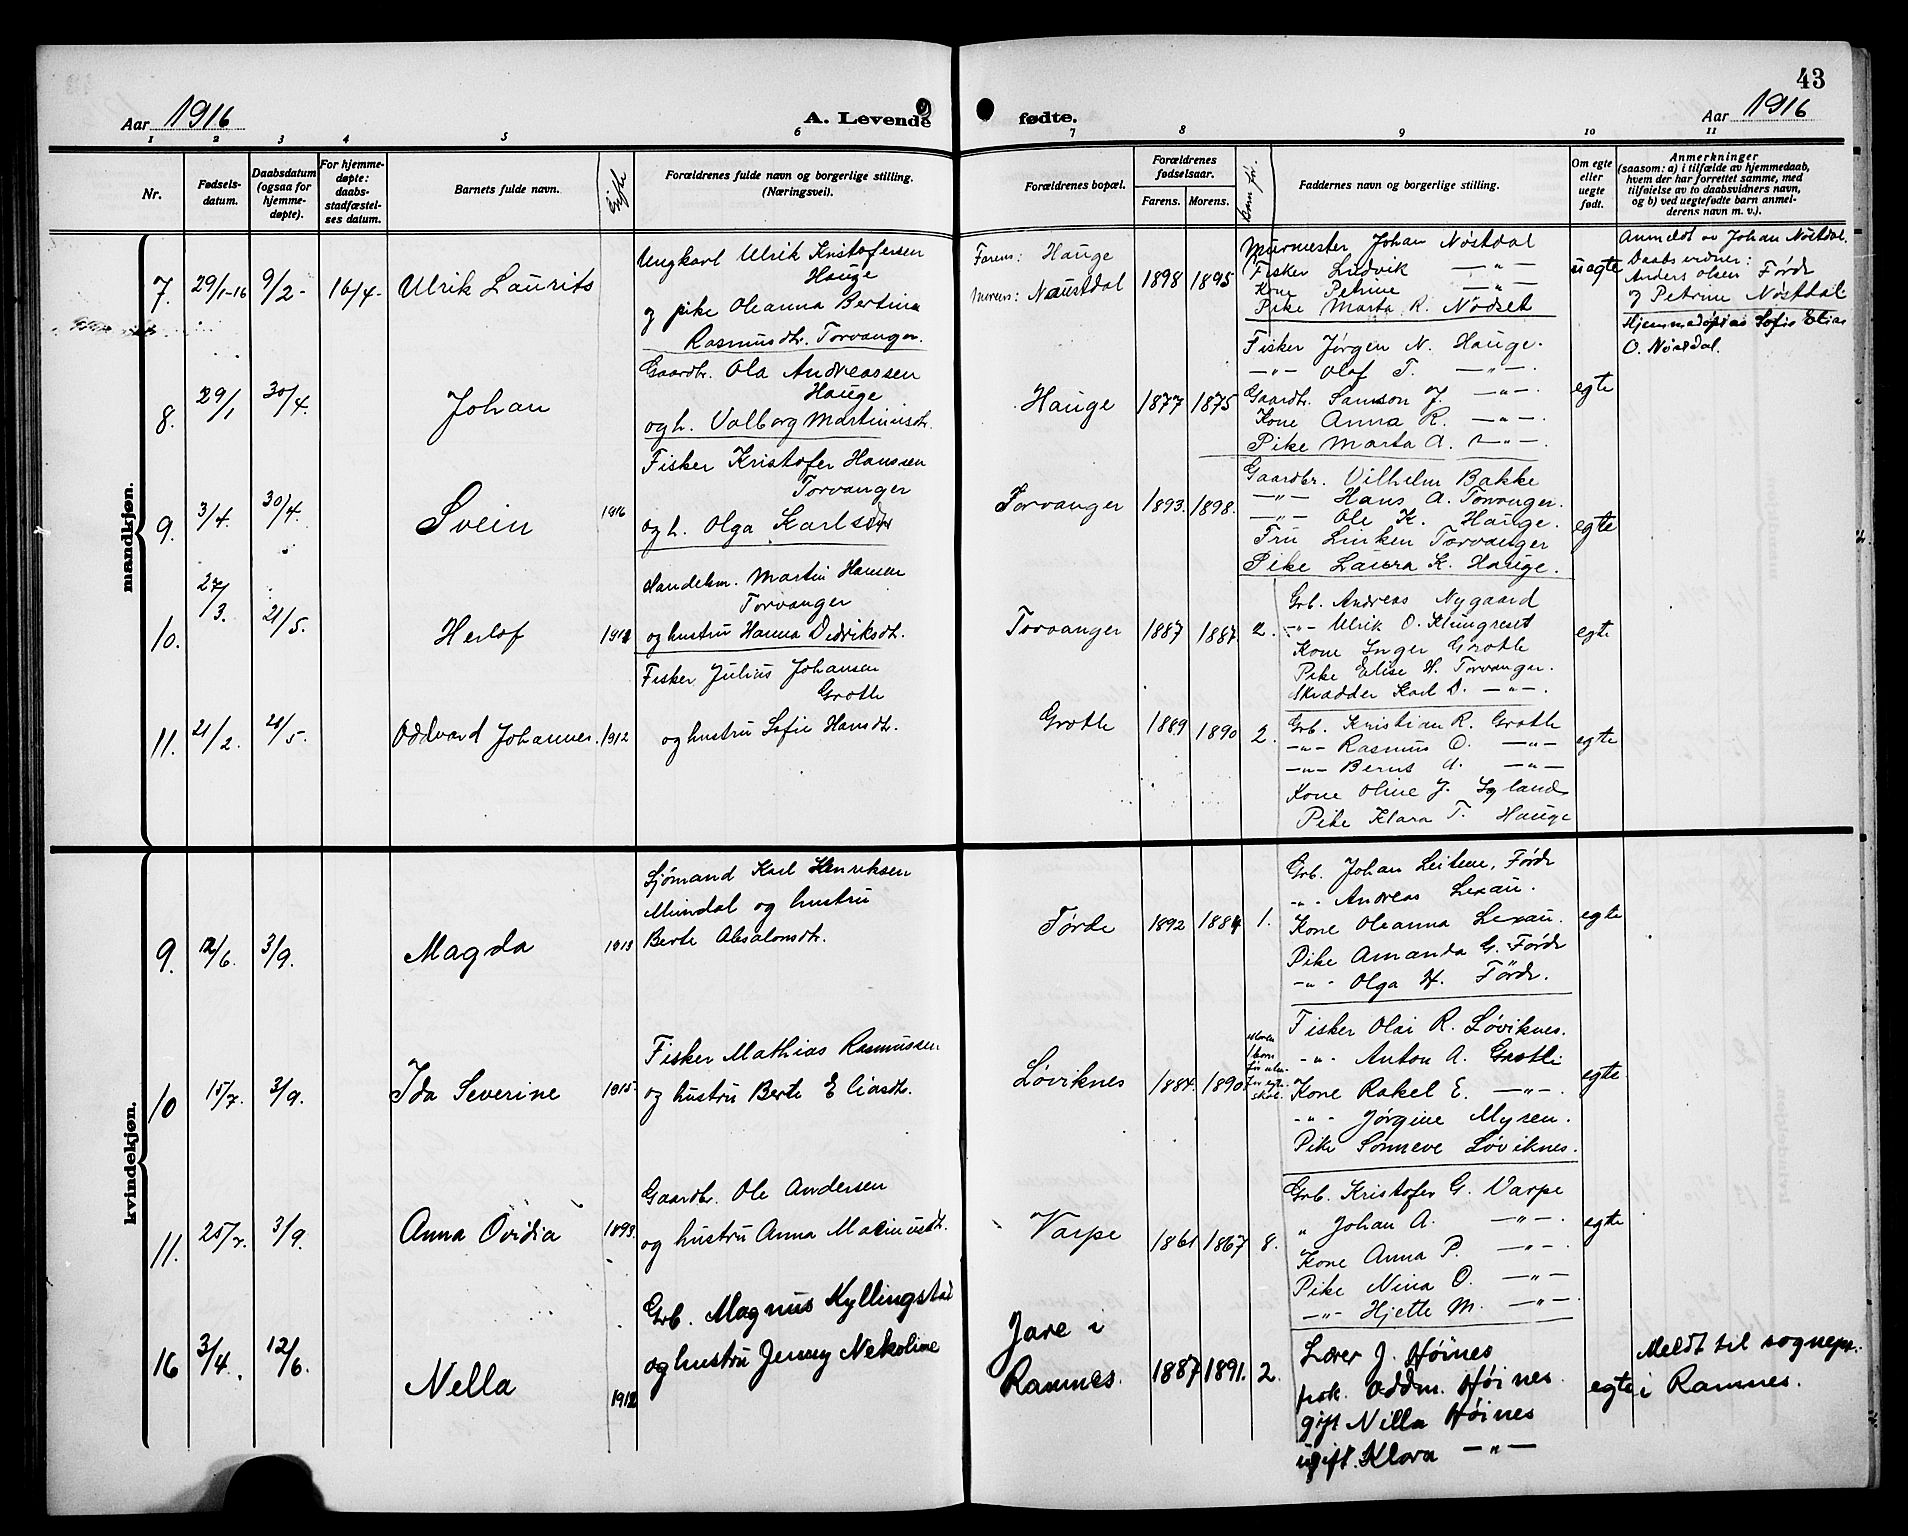 43
Aar 1916
A. Levende
fødte.
Aar 1916
1 2 3 4 5 6 7 8 9 10 11
Nr.
Fødsels-
datum.
Daabsdatum
(ogsaa for
hjemme-
døpte).
For hjemme-
døpte:
daabs-
stadfæstel-
ses datum.
Barnets fulde navn.
Gifte
Forældrenes fulde navn og borgerlige stilling.
(Næringsvei).
Forældrenes bopæl.
Forældrenes
fødselsaar.
Farens. Morens.
Barn før:
Faddernes navn og borgerlige stilling.
Om egte
eller
uegte
født.
Anmerkninger
(saasom: a) i tilfælde av hjemmedaab,
hvem der har forrettet samme, med
tilføielse av to daabsvidners navn,
og b) ved uegtefødte barn anmel-
derens navn m. v.).
mandkjøn.
7. 29/1-16 9/2- 16/4- Ulrik Laurits
Ungkarl Ulrik Kristofersen
Hauge
og pike Oleanna Bertina
Rasmusdtr. Torvanger.
Farens: Hauge
Morens: Naustdal 1898 1895
Murmester Johan Nøstdal
Fisker Ludvik —"—
Kone Petrine —"—
Pike Marta R. Nödset
uegte
Anmeldt av Johan Nøstdal.
Daabsvidner:
Anders Olsen Førde
og Petrine Nøstdal.
Hjemmedøpt as Sofie Elias
O. Nøstdal.
8. 29/1 30/4. Johan
Gaardbr. Ola Andreassen
Hauge
og h. Valborg Martinusdtr.
Hauge 1877 1875
Fisker Jørgen N. Hauge.
—"— Olaf T. —"—.
Gaardbr. Samson J. —"—.
Kone Anna R. —"—.
Pike Marta A. —"—.
egte
9. 3/4. 30/4. Svein 1916
Fisker Kristofer Hanssen
Torvanger
og h. Olga Karlsdtr
Torvanger 1893. 1898.
Gaardbr. Vilhelm Bakke
—"— Hans A. Torvanger.
—"— Ole K. Hauge.
Fru Linken Torvanger
Pike Laura K. Hauge.
egte
10. 27/3. 21/5. Herlof 1912
Handelsm. Martin Hansen
Torvanger
og hustru Hanna Didriksdtr.
Torvanger 1887 1887. 2.
Grb. Andreas Nygaard
-"- Ulrik O. Klungreset
Kone Inger Grotle
Pike Elise H. Torvanger.
Skrædder Karl D. —"—.
egte
11. 21/2. 21/5. Oddvard Johannes. 1912
Fisker Julius Johansen
Grotle
og hustru Sofie Hansdtr.
Grotle 1889 1890 2.
Grb. Kristian R. Grotle
-"- Rasmus O. —"—
-"- Berns A. —"—
Kone Oline J. Igland
Pike Klara T. Hauge
egte
kvindekjøn.
9. 12/6. 3/9. Magda 1913
Sjømand Karl Henriksen
Mundal og hustru
Berte Absalonsdtr.
Førde 1892 1884 1.
Grb. Johan Leitene, Førde
-"- Andreas Lexau.
Kone Oleanna Lexau.
Pike Amanda G. Førde
-"- Olga H. Førde.
egte
10 15/7. 3/9. Ida Severine 1915.
Fisker Mathias Rasmussen
og hustru Berte Eliasdtr.
Løviknes 1884. 1890
Moren
1 barn
Fisker Olai R. Løviknes.
-"- Anton A. Grotle
Kone Rakel E. —"—.
-"- Jørgine Myren.
Pike Sønneve Løviknes.
egte
11. 25/7. 3/9. Anna Ovidia 1893.
Gaardbr. Ole Andersen
og hustru Anna Maximusdtr.
Varpe 1861 1867 8.
Grb. Kristofer G. Varpe
" Johan A. —"—.
Kone Anna P. —"—.
Pike Nina O. —"—
-"- Hjette M. —"—
egte
16 3/4. 12/6. Nella 1912
Grb. Magnus Kyllingstad
og hustru Jenny Nekoline
Jare i
Ramnes. 1887 1891. 2.
Lærer J. Høines
frøk. Oddm. Høines.
gift Nilla Høines
ugift. Klara —"—
egte
Meldt til sognepr.
i Ramnes.